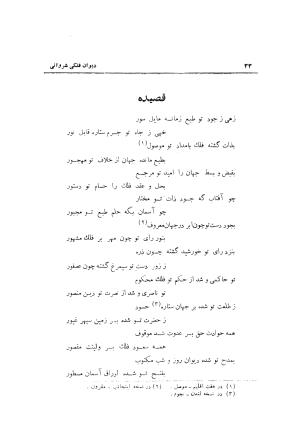 ۳۳
دیوان فلکی شروانی
قصیده
زهی ز جود تو طبع زمانه مایل سور
خهی ز جاه تو جرم ستاره قابل نور
بذات گشته فلك بامدار تو موصول (۱)
بطبع مانده جهان از خلاف تو مهجور
بقبض و بسط جهان را امید تو مرجع
بحل و عقد فلك را حسام تو دستور
چو آفتاب که جود ذات تو مختار
چو آسمان بگه حلم طبع تو مجبور
بجود دست تو چون ابر در جهان معروف (۲)
بنور رای تو چون مهر بر فلك مشهور
بنزد رای تو خورشید گشته چون ذره
ز زور دست تو سیمرغ گشته چون عصفور
تو حاکمی و شد از حکم تو فلك محکوم
تو ناصری و شد از نصرت تو دین منصور
ز طلعت تو شده بر جهان ستاره (۳) حسود
ز حضرت تو شده بر زمین سپهر غیور
همه حوادث حق بر عدوت شده موقوف
همه سعود فلك بر ولیت مقصور
بمدح تو شده دیوان روز و شب مکتوب
بفتح تو شده اوراق آسمان مسطور
(۱) در هفت اقلیم ـ موصل . (۲) در نسخه ـ مقرون .
(۳) در نسخه لندن ـ نجوم .